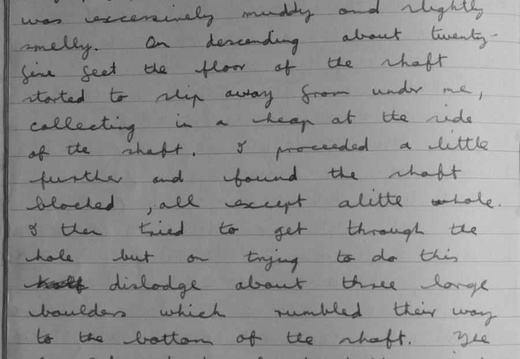 was excessively muddy and slightly
smelly. On descending about twenty-
five feet the floor of the shaft
started to slip away from under me,
collecting in a heap at the side
of the shaft. I proceeded a little
further and found the shaft
blocked, all except alitte whole.
I then tried to get through the
hole but on trying to do this
dislodge about three large
boulders which rumbled their way
to the bottom of the shaft.